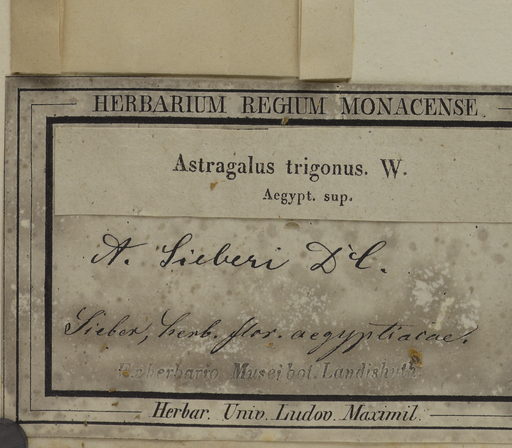 HERBARIUM REGIUM MONACENSE
Astragalus trigonus. W.
Aegypt. sup.
A. Sieberi D'C.
Sieber, herb. flor. aegyptiacae.
herbario Musei bot. Landishuth.
Herbar. Univ. Ludov. Maximil.